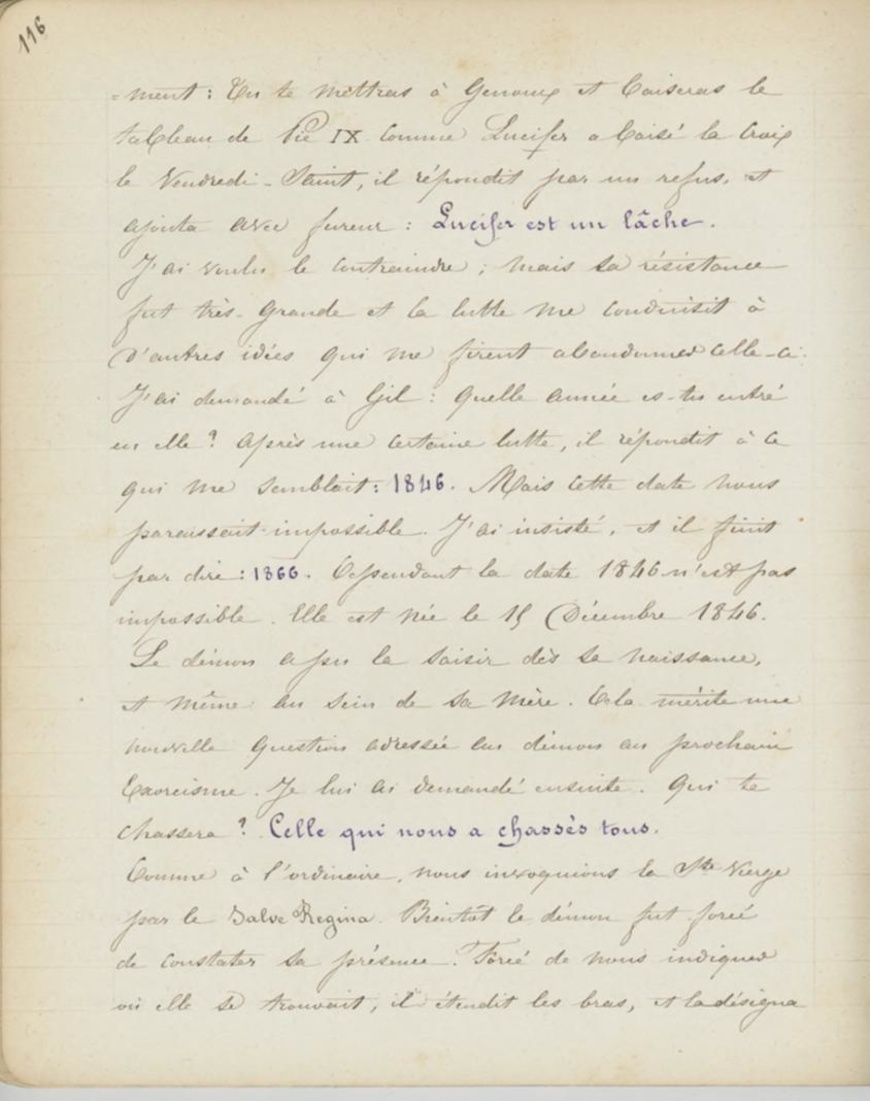 116
- ment : Tu te mettras à Genoux et baiseras le
tableau de Pie IX comme Lucifer a baisé la Croix
le Vendredi-Saint, il répondit par un refus, et
ajouta avec fureur : Lucifer est un lâche.
J'ai voulu le contraindre ; mais sa résistance
fut très-grande et la lutte me conduisit à
d'autres idées qui me firent abandonner celle-ci.
J'ai demandé à Gil : quelle année es-tu entré
en elle ? après une certaine lutte, il répondit à ce
qui me semblait : 1846. Mais cette date nous
paraissait impossible. J'ai insisté, et il finit
par dire : 1866. Cependant la date 1846 n'est pas
impossible. Elle est née le 15 Décembre 1846.
Le démon a pu la saisir dès sa naissance,
et même au sein de sa mère. Cela mérite une
nouvelle question adressée au démon au prochain
Exorcisme. Je lui ai demandé ensuite. Qui te
chassera ? Celle qui nous a chassés tous.
Comme à l'ordinaire, nous invoquions la Ste Vierge
par le Salve Regina. Bientôt le démon fut forcé
de constater sa présence. Forcé de nous indiquer
où elle se trouvait, il étendit les bras, et la désigna